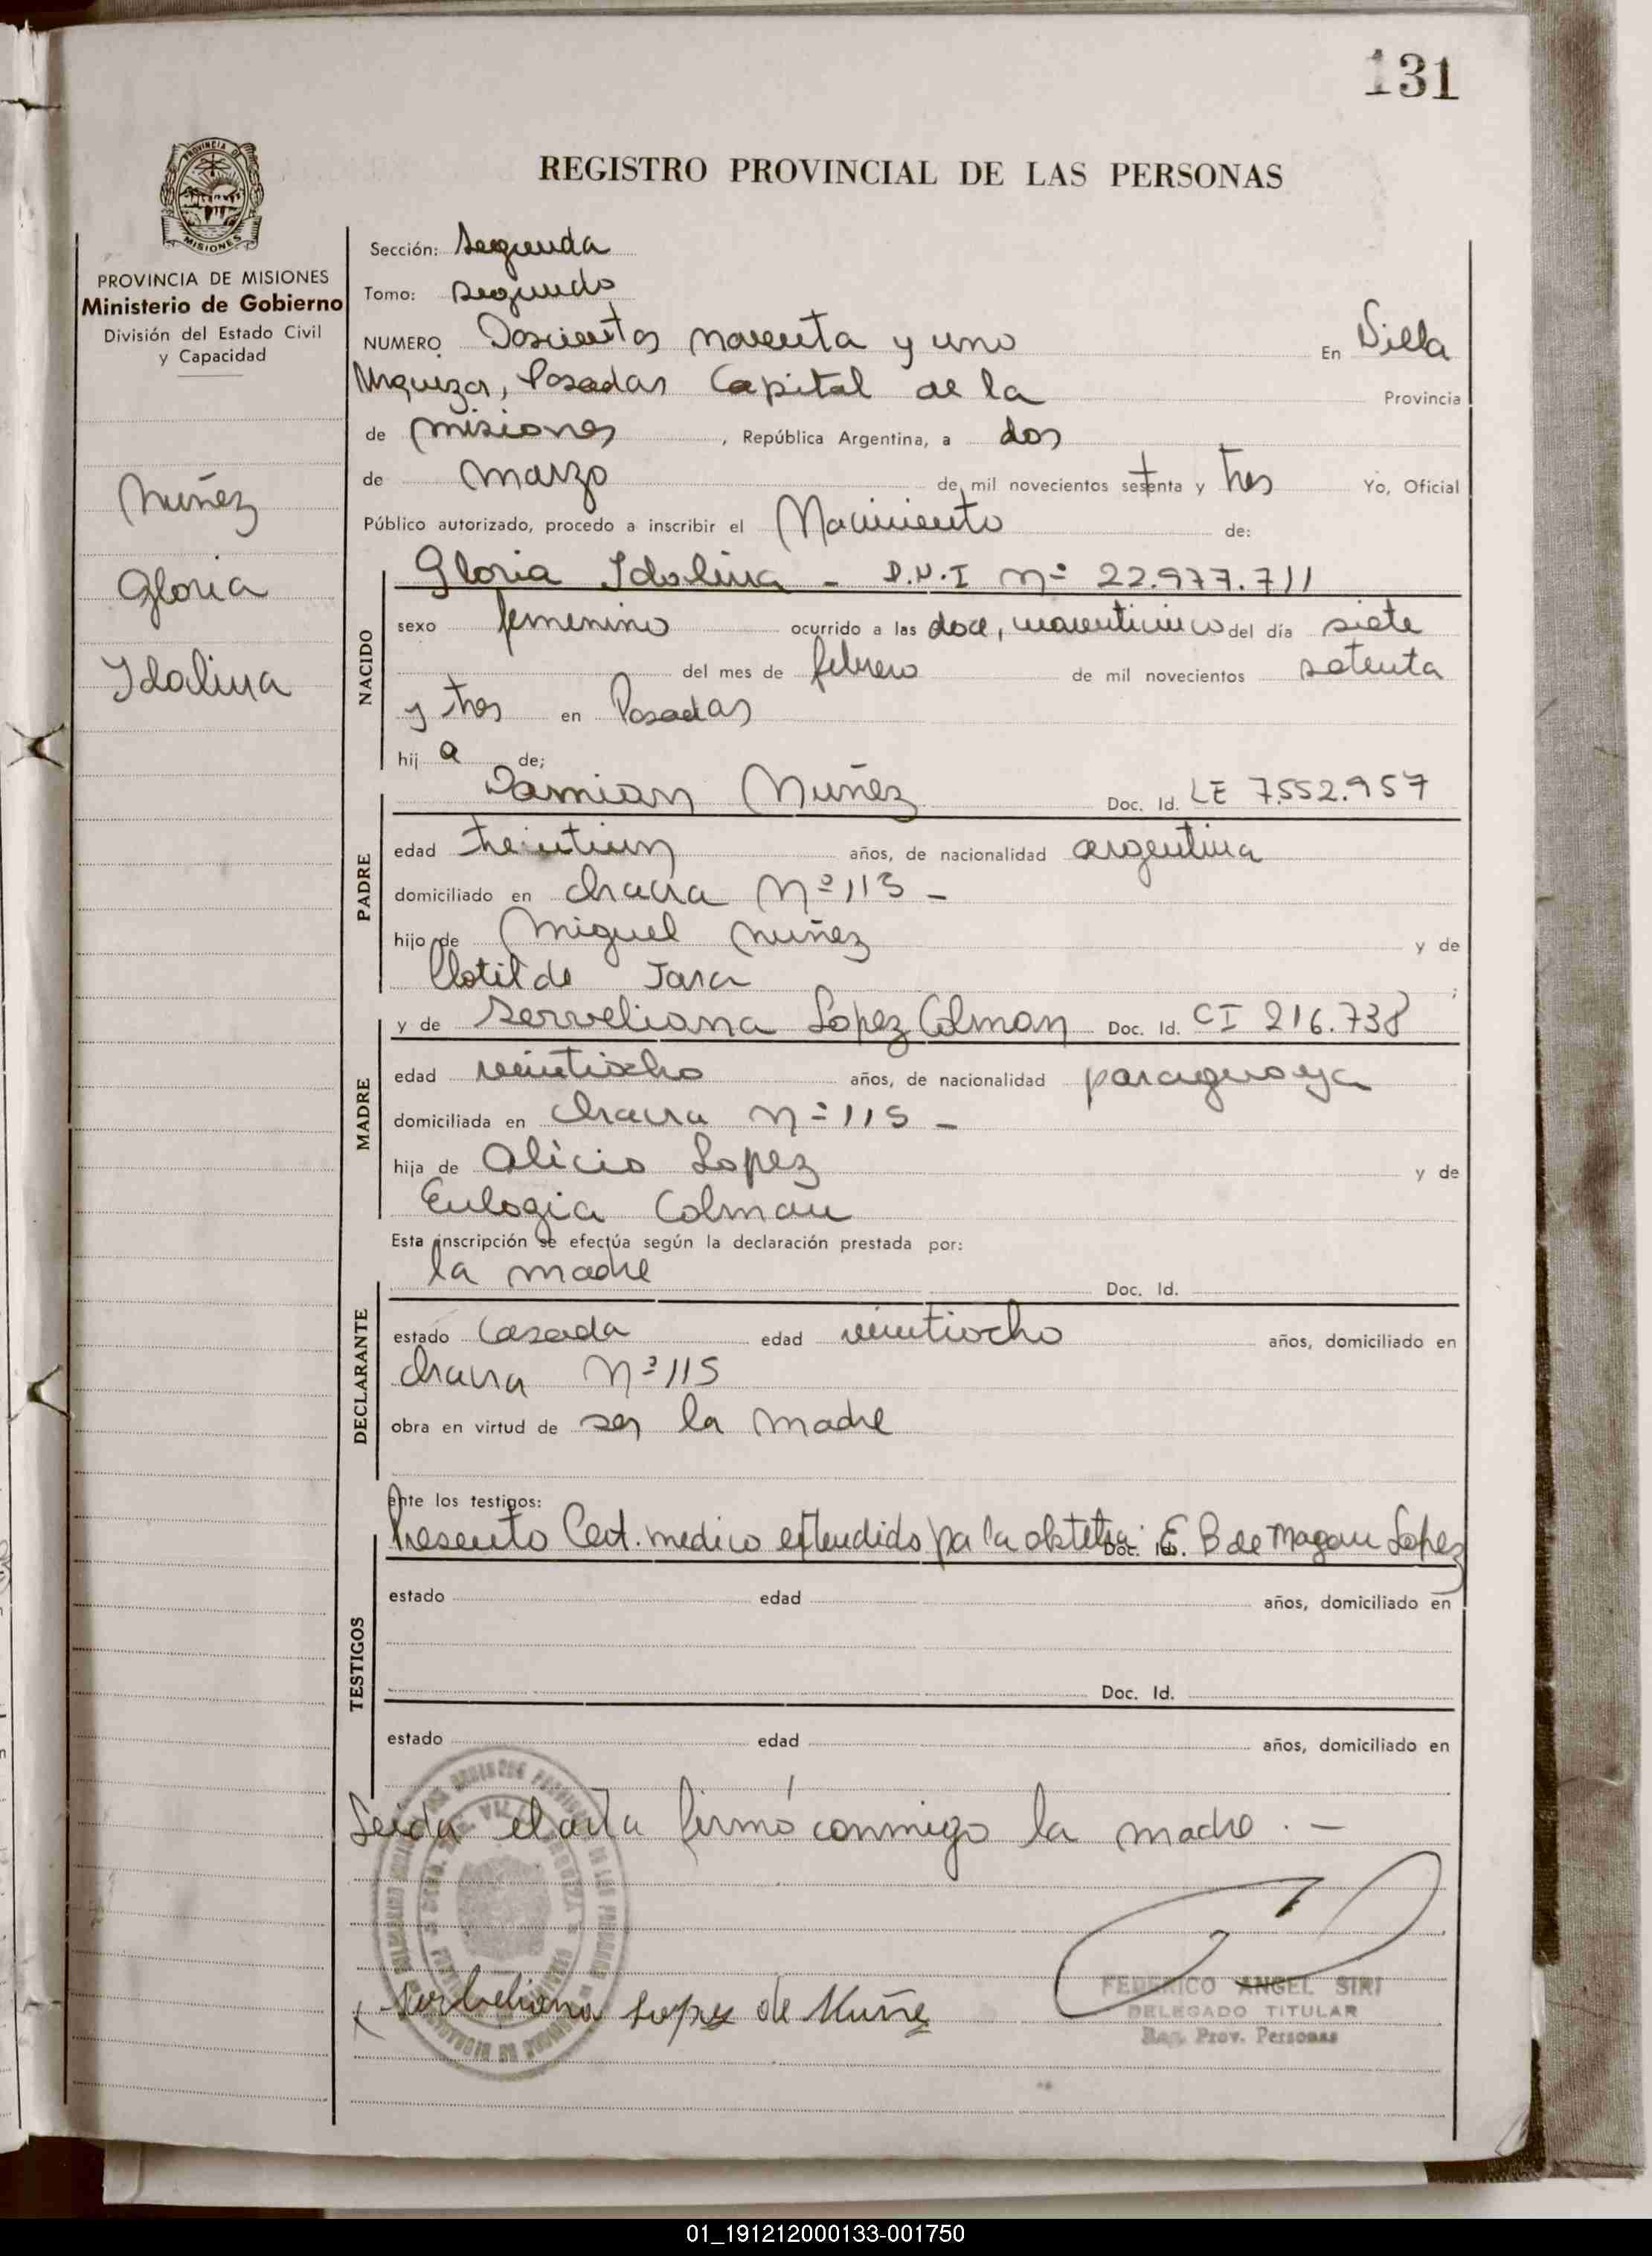 131
REGISTRO PROVINCIAL DE LAS PERSONAS
PROVINCIA DE MISIONES
Ministerio de Gobierno
División del Estado Civil
y Capacidad
Nuñez
Gloria
Idalina
Sección: Segunda
Tomo: Segundo
NUMERO Doscientos noventa y uno En Villa
Urquiza, Posadas Capital de la Provincia
de misiones, República Argentina, a dos
de marzo de mil novecientos setenta y tres Yo, Oficial
Público autorizado, procedo a inscribir el Nacimiento de:
NACIDO
Gloria Idalina - D.N.I nº 22.977.711
sexo femenino ocurrido a las doce, cuarenticinco del día siete
del mes de febrero de mil novecientos setenta
y tres en Posadas
hija de;
PADRE
Damian Nuñez Doc. Id. LE 7.552.957
edad treintiun años, de nacionalidad argentina
domiciliado en chacra Nº 113 -
hijo de Miguel Nuñez y de
Clotilde Jara ;
MADRE
y de Serveliana Lopez Colman Doc. Id. CI 216.738
edad veintiocho años, de nacionalidad paraguaya
domiciliada en chacra nº 115 -
hija de Alicio Lopez y de
Eulogia Colman
Esta inscripción se efectúa según la declaración prestada por:
DECLARANTE
la madre Doc. Id.
estado Casada edad veintiocho años, domiciliado en
chacra Nº 115
obra en virtud de ser la madre
ante los testigos:
TESTIGOS
Presento Cert. medico extendido por la obstetra: Doc. Id. E. B de Magan Lopez
estado edad años, domiciliado en
Doc. Id.
estado edad años, domiciliado en
Leída el acta firmó conmigo la madre. -
Serbeliana Lopez de Nuñez
FEDERICO ANGEL SIRI
DELEGADO TITULAR
Reg. Prov. Personas
01_191212000133-001750